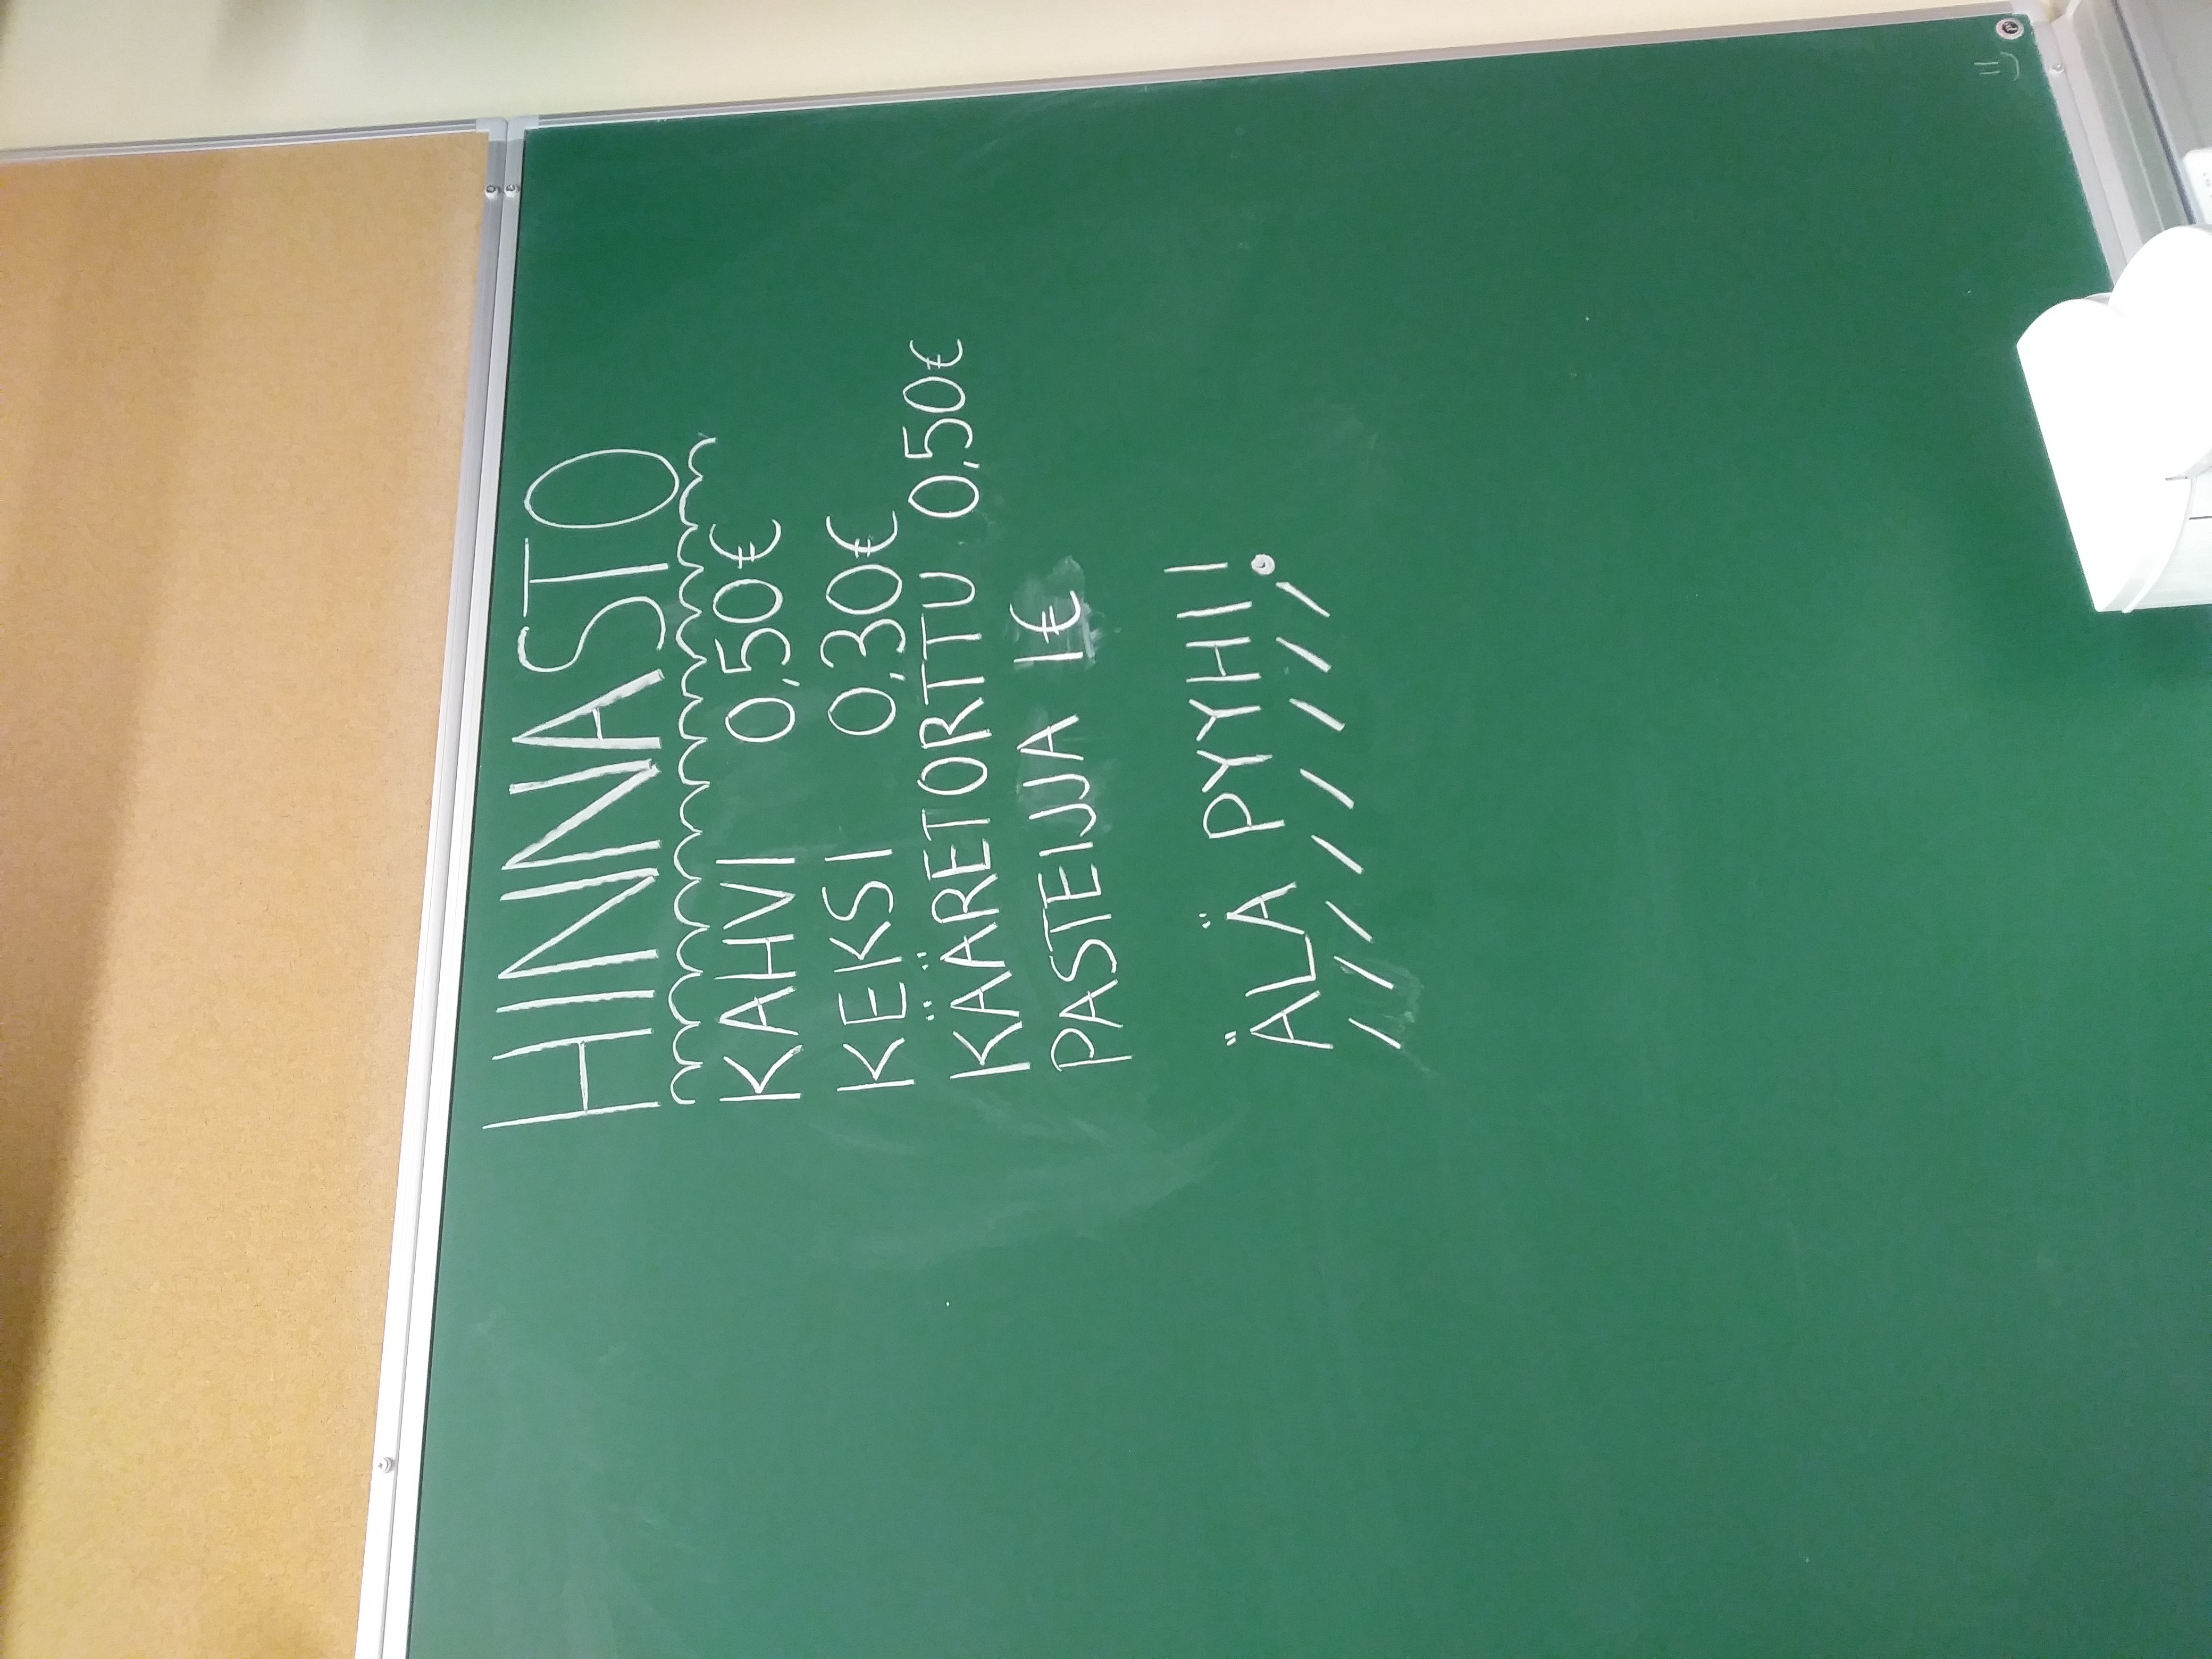 HINNASTO
KAHVI 0,50€
KEKSI 0,30€
KÄÄRETORTTU 0,50€
PASTEIJJA 1€
ÄLÄ PYYHI!
=)